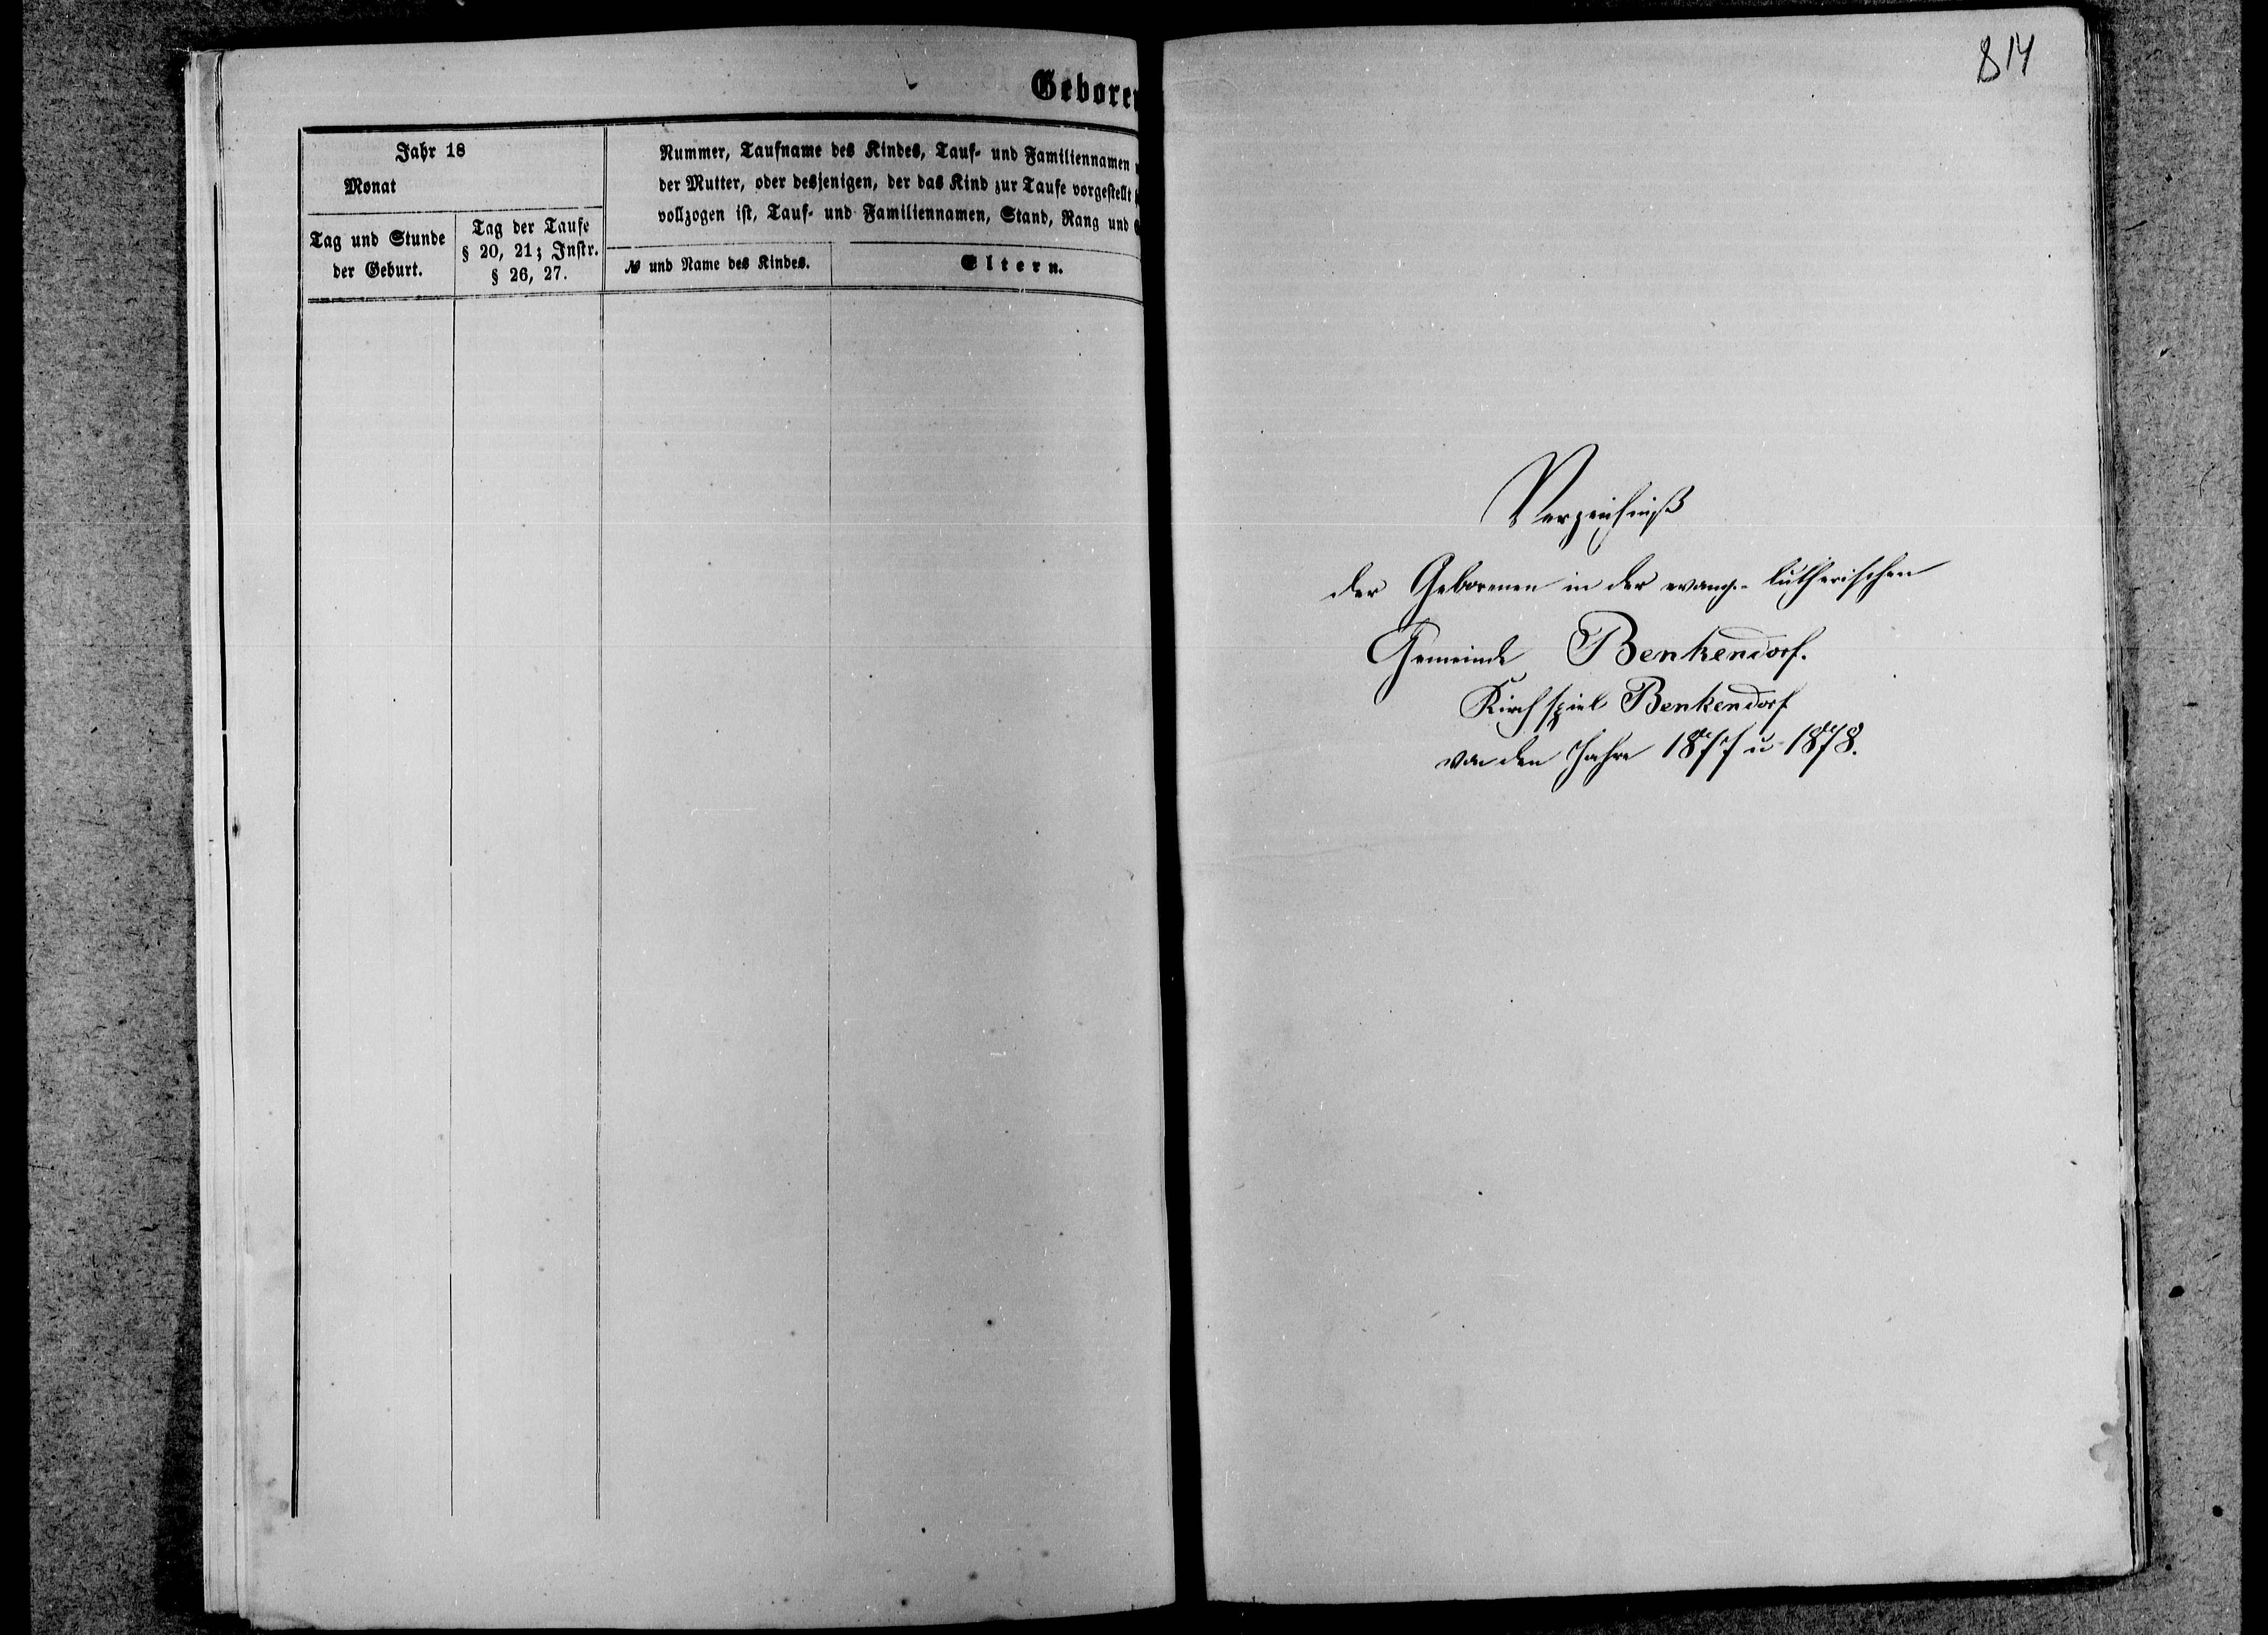 Gebore
Jahr 18
Monat
Tag und Stunde
der Geburt.
Tag der Taufe
§ 20, 21; Instr.
§ 26, 27.
Nummer, Taufname des Kindes, Tauf- und Familiennamen
der Mutter, oder desjenigen, der das Kind zur Taufe vorgestellt
vollzogen ist, Tauf- und Familiennamen, Stand, Rang und
№ und Name des Kindes.
Eltern.
814
Verzeichniß
der Geborenen in der evang.- lutherischen
Gemeinde Benkendorf.
Kirchspiel Benkendorf
von den Jahre 1877 u 1878.